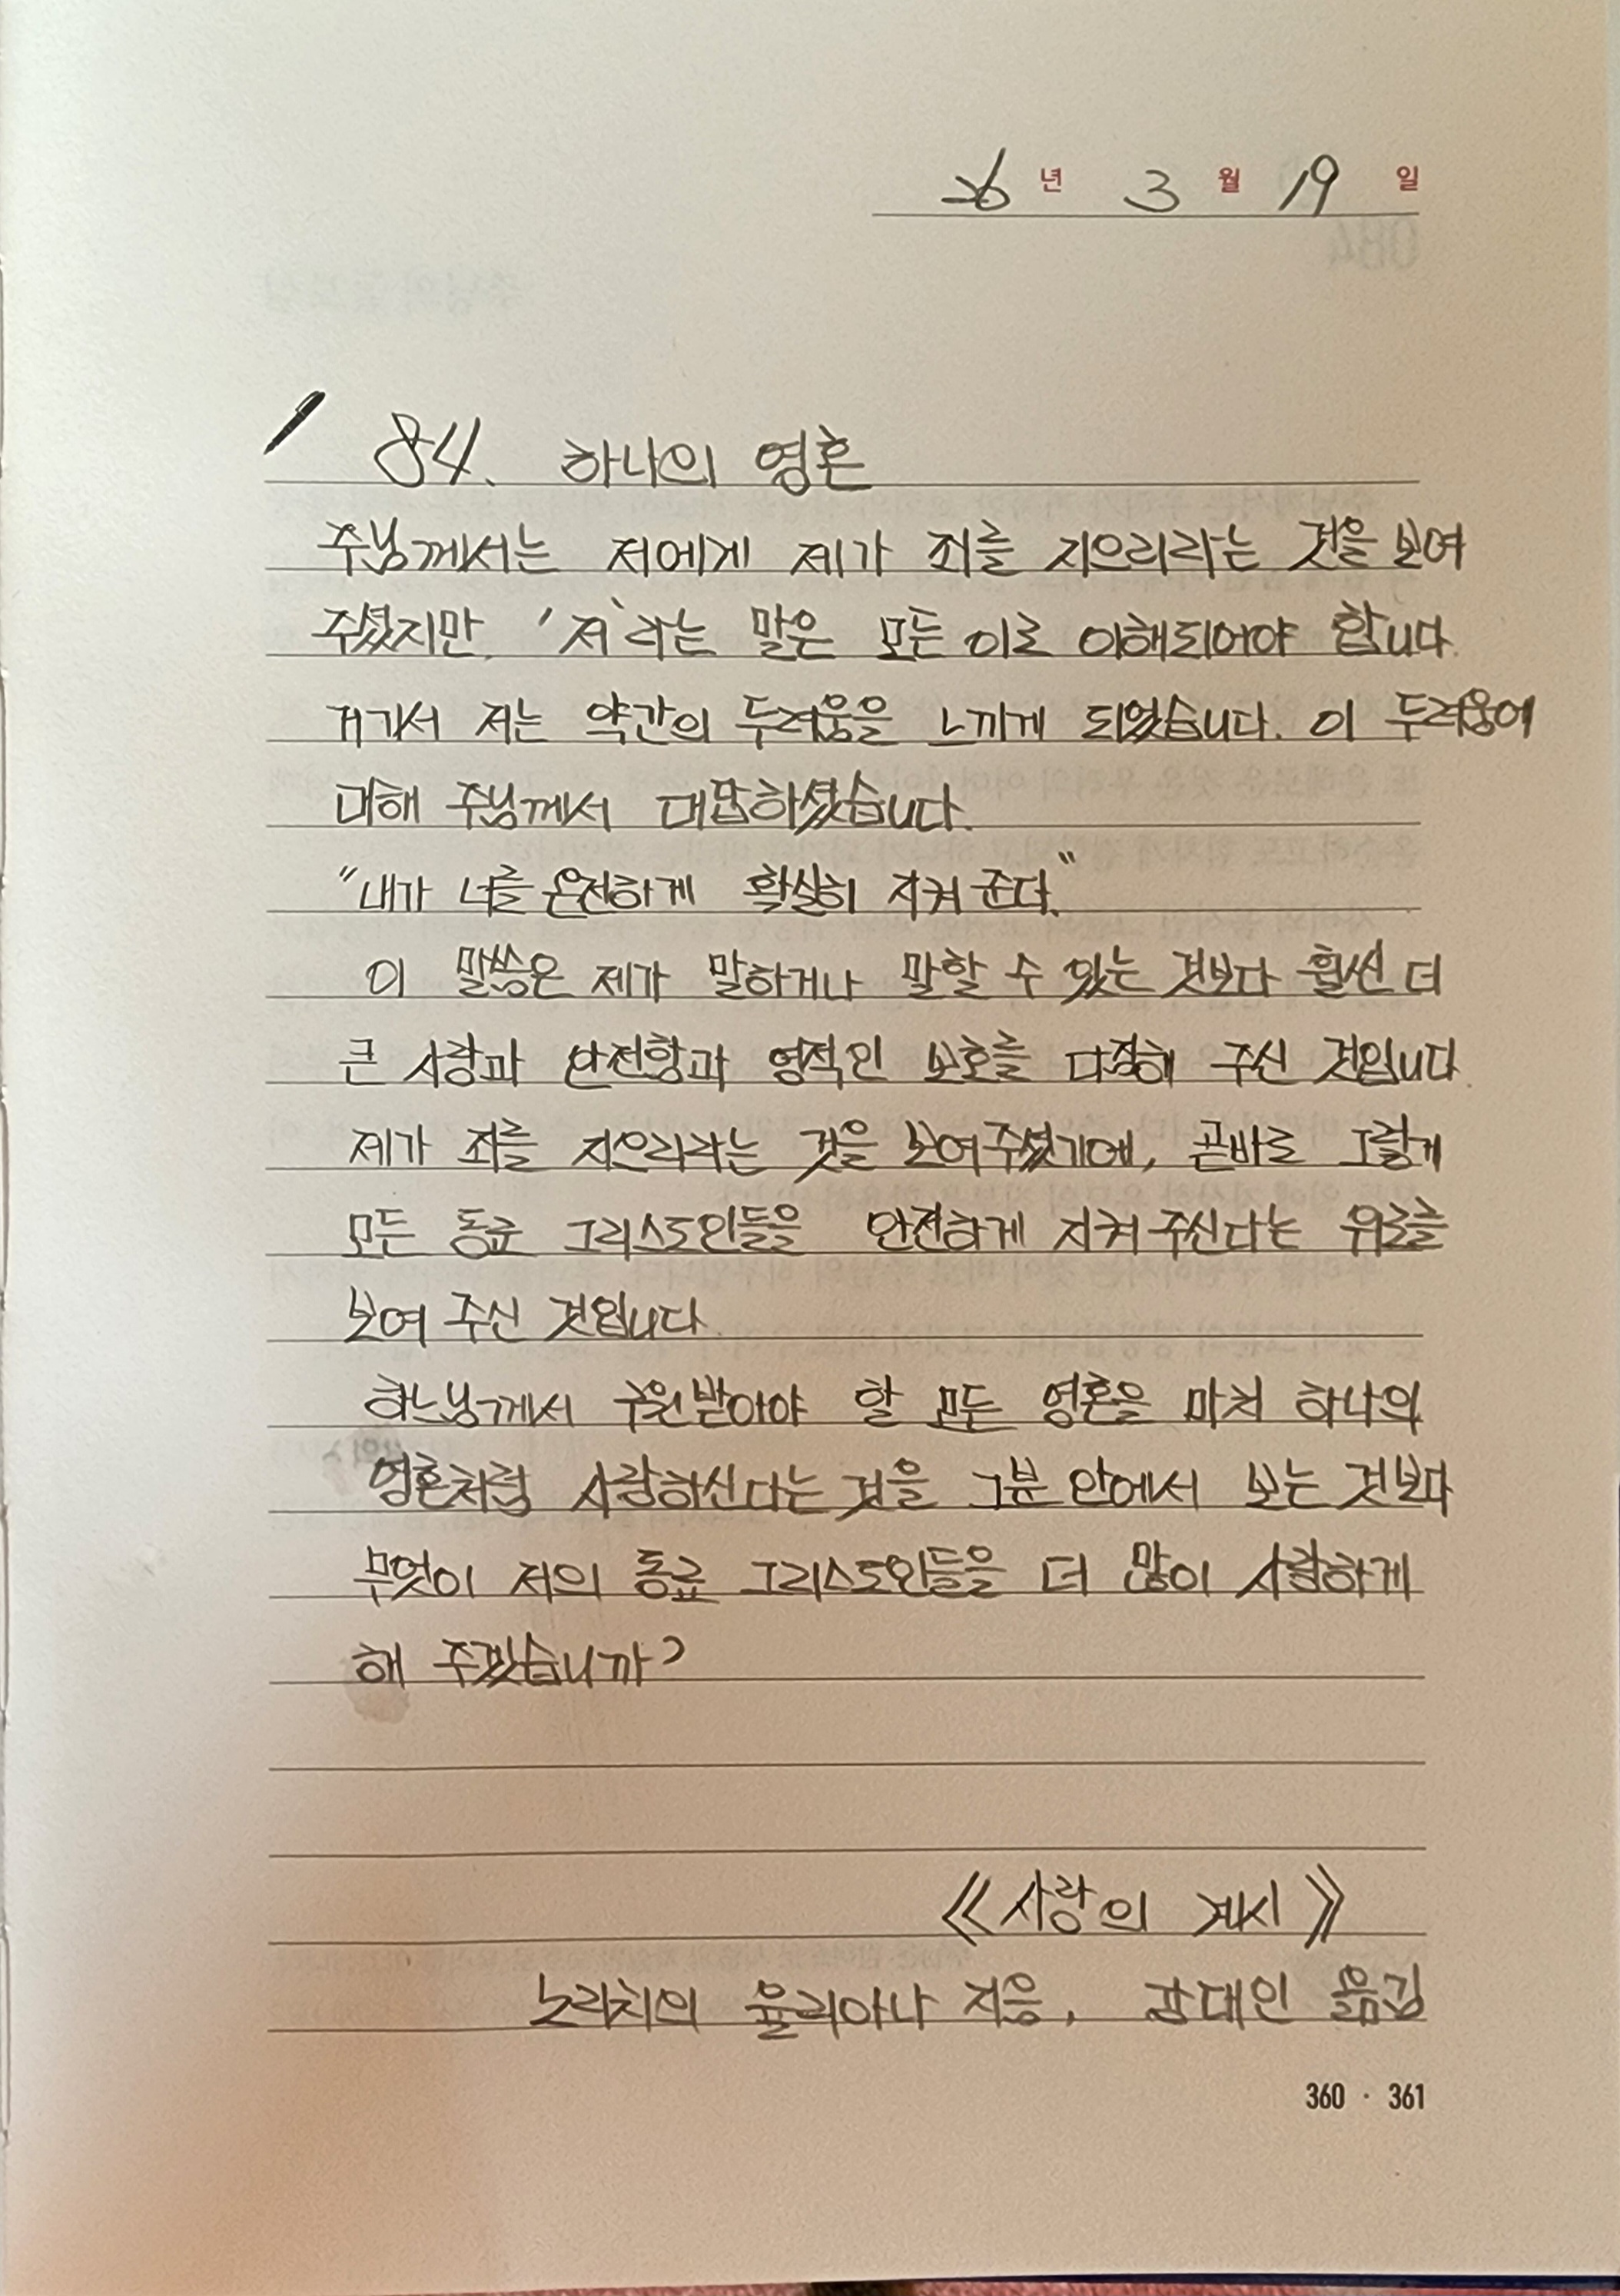 26년 3월 19일
84. 하나의 영혼
주님께서는 저에게 제가 죄를 지으리라는 것을 보여
주셨지만, '저'라는 말은 모든 이로 이해되어야 합니다.
거기서 저는 약간의 두려움을 느끼게 되었습니다. 이 두려움에
대해 주님께서 대답하셨습니다.
"내가 너를 온전하게 확실히 지켜 준다."
이 말씀은 제가 말하거나 말할 수 있는 것보다 훨씬 더
큰 사랑과 안전함과 영적인 보호를 다짐해 주신 것입니다.
제가 죄를 지으리라는 것을 보여주셨기에, 곧바로 그렇게
모든 동료 그리스도인들을 안전하게 지켜 주신다는 위로를
보여 주신 것입니다.
하느님께서 구원받아야 할 모든 영혼을 마치 하나의
영혼처럼 사랑하신다는 것을 그분 안에서 보는 것보다
무엇이 저의 동료 그리스도인들을 더 많이 사랑하게
해 주겠습니까?
《사랑의 계시》
노리치의 율리아나 지음, 강대인 옮김
360 · 361